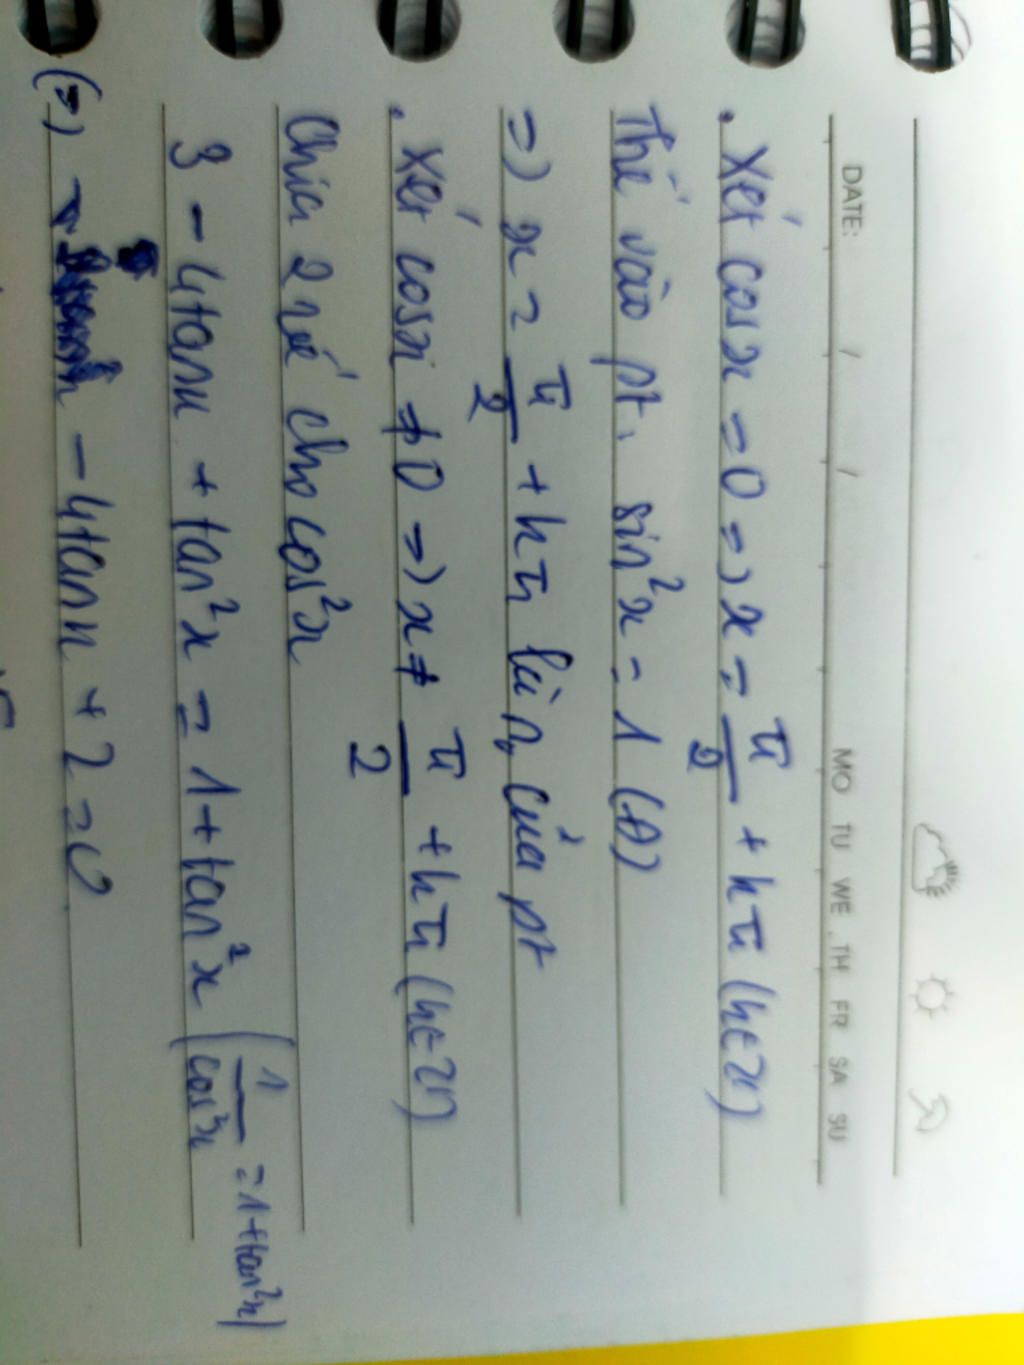 DATE: / / MO TU WE TH FR SA SU
. Xét cosx = 0 => x = π/2 + kπ (k∈Z)
Thế vào pt. sin²x = 1 (Đ)
=> x = π/2 + kπ là n₀ của pt
. Xét cosx ≠ 0 => x ≠ π/2 + kπ (k∈Z)
Chia 2 vế cho cos²x
3 - 4tanx + tan²x = 1 + tan²x (1/cos²x = 1 + tan²x)
(=) - 4tanx + 2 = 0